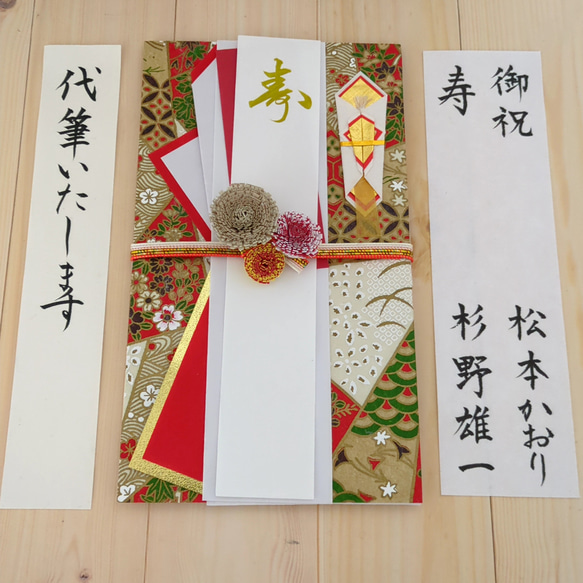 御祝
松本かおり
寿
杉野雄一
寿
代筆いたします